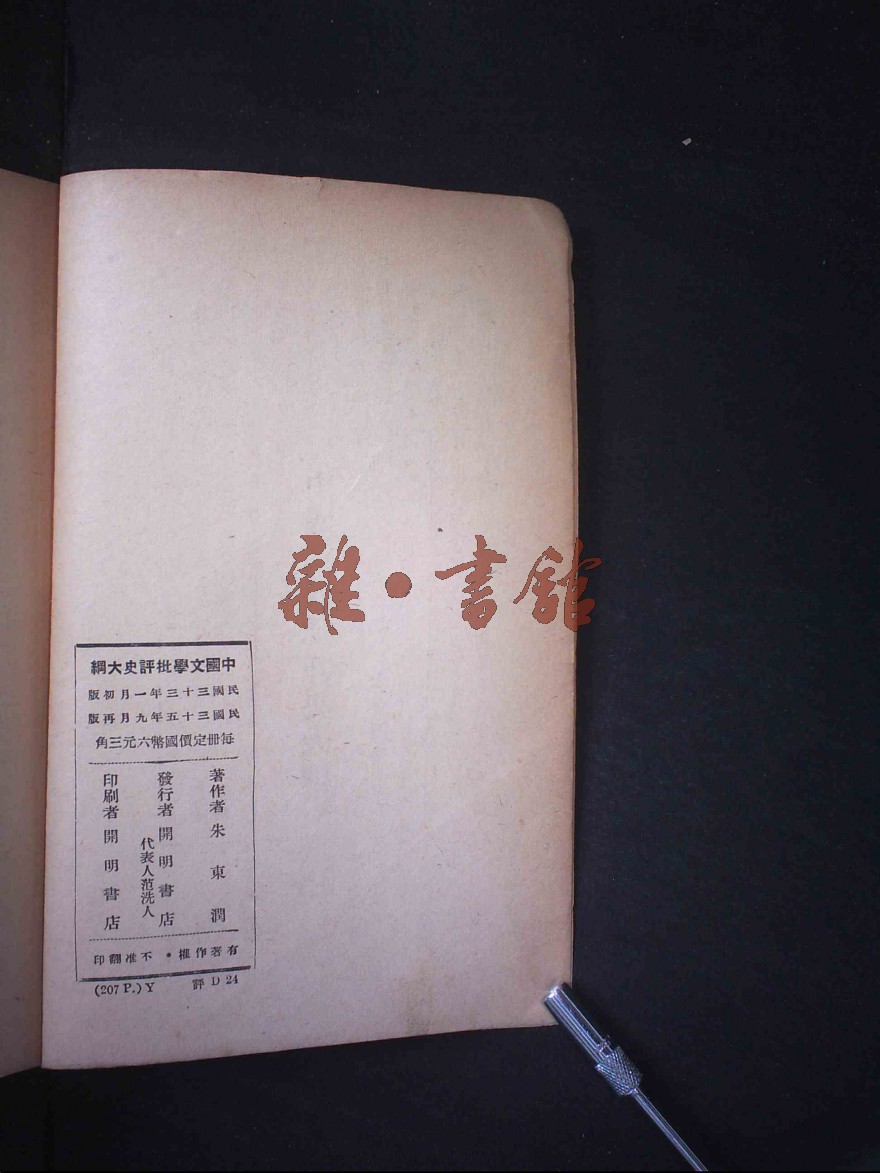 雜·書館
中國文學批評史大綱
民國三十三年一月初版
民國三十五年九月再版
每冊定價國幣六元三角
著作者 朱東潤
發行者 開明書店
代表人范洗人
印刷者 開明書店
有著作權•不准翻印
(207 P.) Y 評 D 24